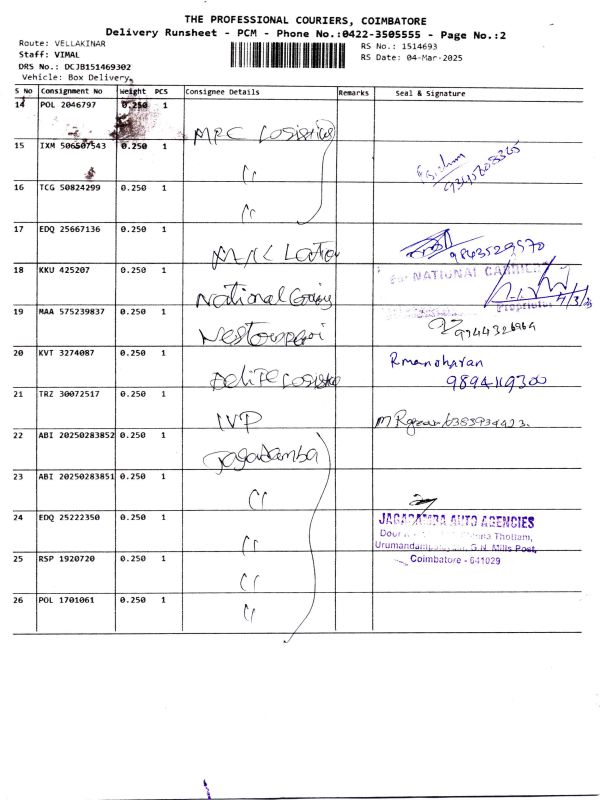 THE PROFESSIONAL COURIERS, COIMBATORE
Delivery Runsheet - PCM - Phone No.:0422-3505555 - Page No.:2
Route: VELLAKINAR
RS No.: 1514693
Staff: VIMAL
RS Date: 04-Mar-2025
DRS No.: DCJB151469302
Vehicle: Box Delivery
S No Consignment No Weight PCS Consignee Details Remarks Seal & Signature
14 POL 2046797 0.250 1
15 IXM 506507543 0.250 1
16 TCG 50824299 0.250 1
17 EDQ 25667136 0.250 1
9843529970
18 KKU 425207 0.250 1 National
NATIONAL CARRIERS
Proprietor
19 MAA 575239837 0.250 1
20 KVT 3274087 0.250 1
R manoharan
9894119300
21 TRZ 30072517 0.250 1 IVP
22 ABI 20250283852 0.250 1 Jagadamba
23 ABI 20250283851 0.250 1
24 EDQ 25222350 0.250 1
JAGADAMBA AUTO AGENCIES
Thottam,
G.N. Mills Post,
25 RSP 1920720 0.250 1
Coimbatore - 641029
26 POL 1701061 0.250 1